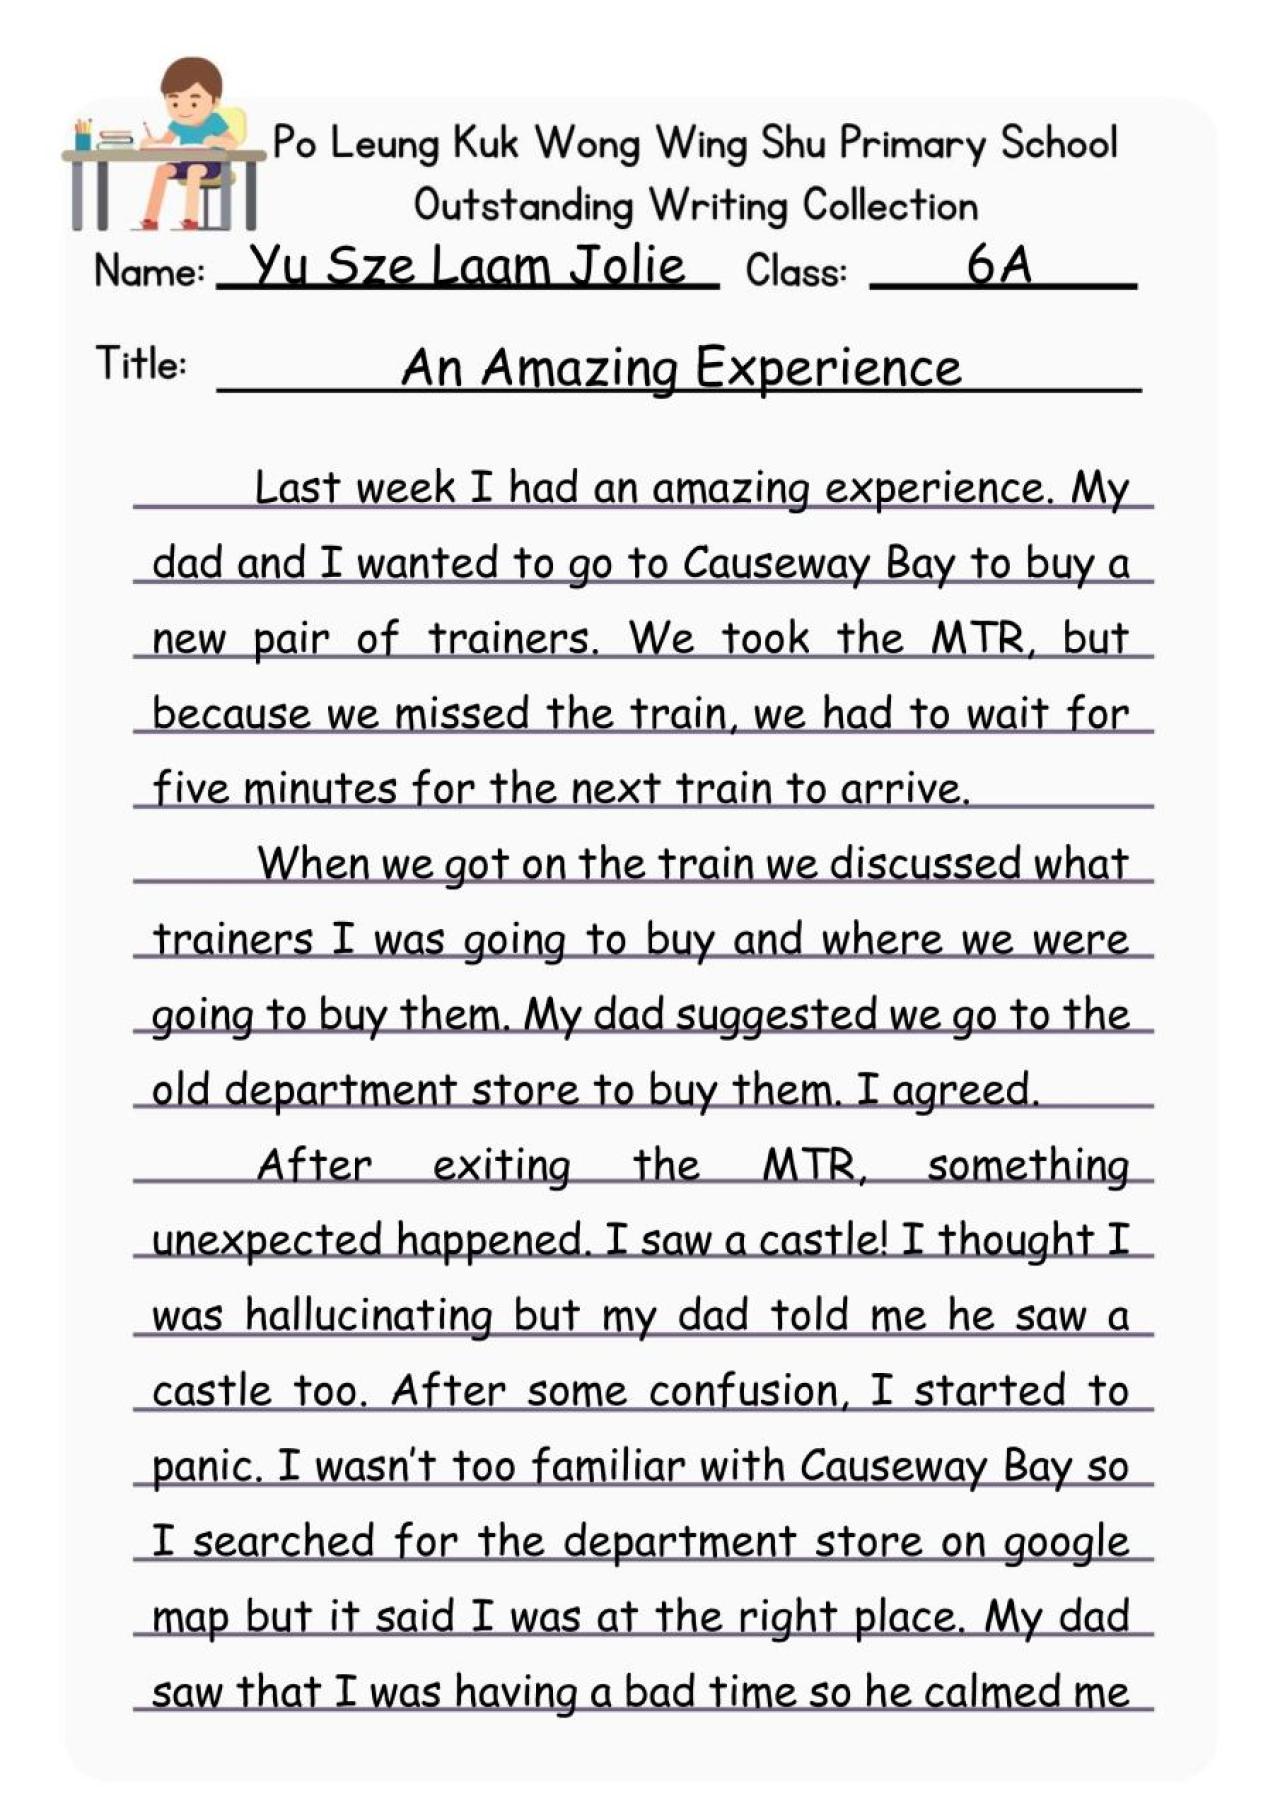 Po Leung Kuk Wong Wing Shu Primary School
Outstanding Writing Collection
Name: Yu Sze Laam Jolie Class: 6A
Title: An Amazing Experience
Last week I had an amazing experience. My
dad and I wanted to go to Causeway Bay to buy a
new pair of trainers. We took the MTR, but
because we missed the train, we had to wait for
five minutes for the next train to arrive.
When we got on the train we discussed what
trainers I was going to buy and where we were
going to buy them. My dad suggested we go to the
old department store to buy them. I agreed.
After exiting the MTR, something
unexpected happened. I saw a castle! I thought I
was hallucinating but my dad told me he saw a
castle too. After some confusion, I started to
panic. I wasn't too familiar with Causeway Bay so
I searched for the department store on google
map but it said I was at the right place. My dad
saw that I was having a bad time so he calmed me